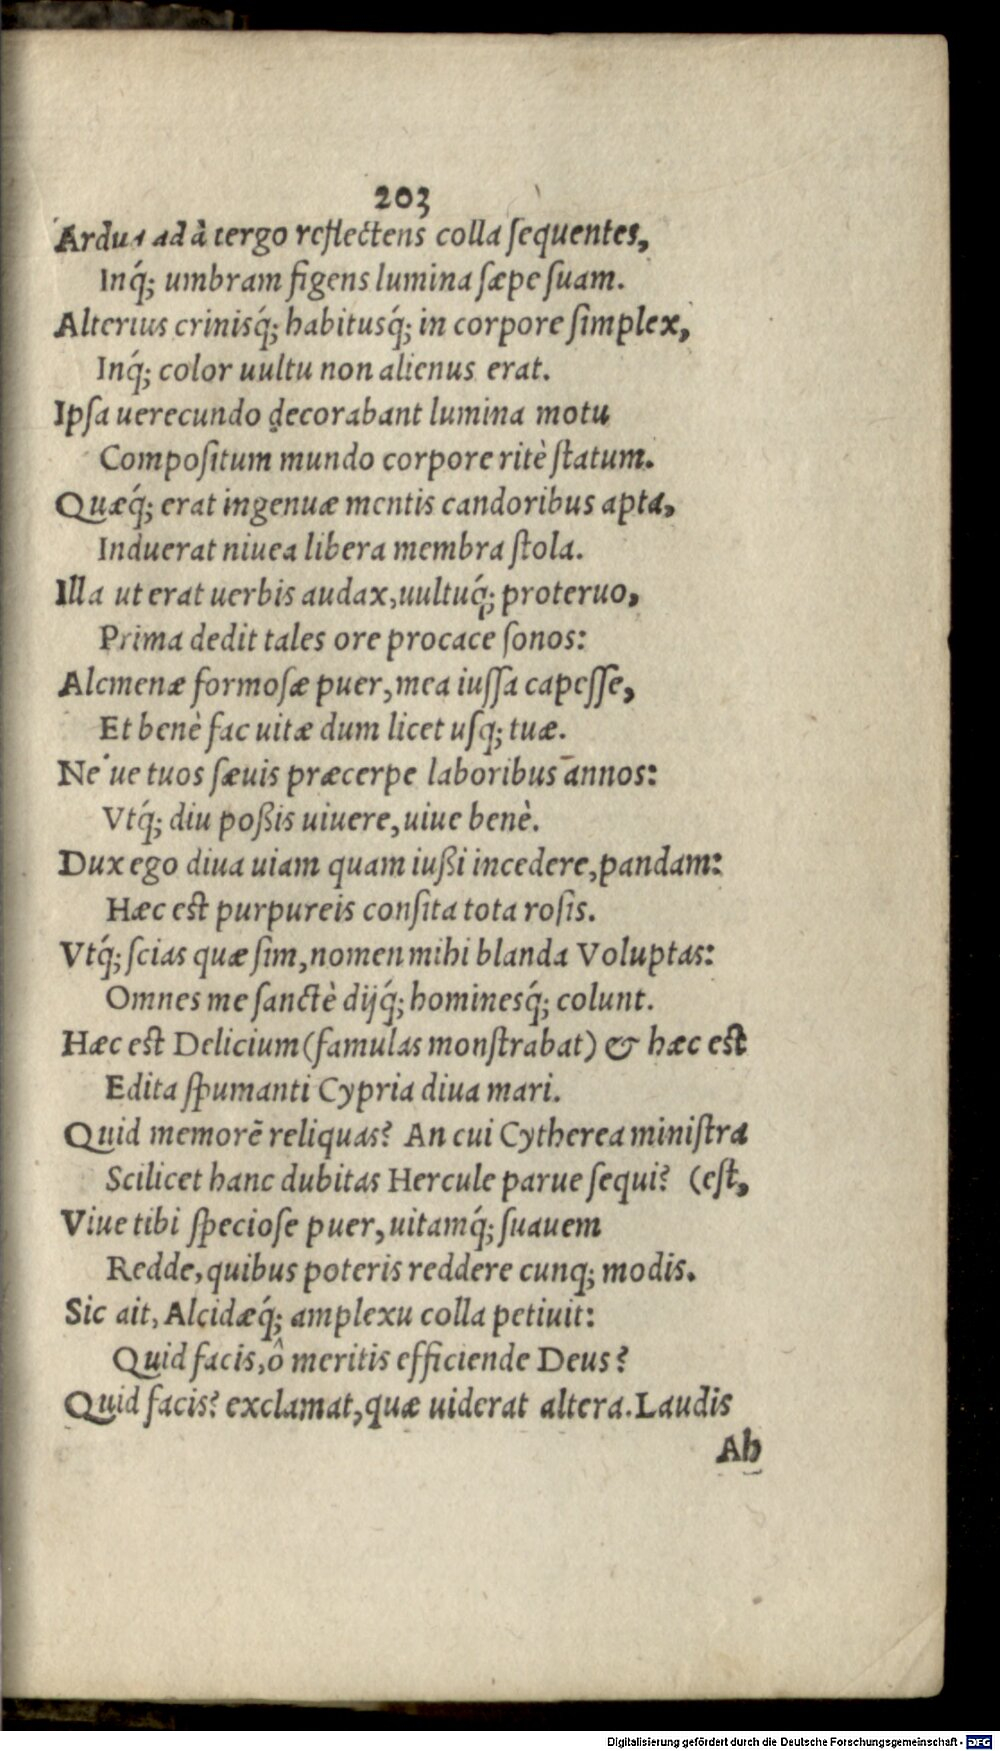 203
Ardua ad à tergo reflectens colla ſequentes,
Inq́; umbram figens lumina ſæpe ſuam.
Alterius crinisq́; habitusq́; in corpore ſimplex,
Inq́; color uultu non alienus erat.
Ipſa uerecundo decorabant lumina motu
Compoſitum mundo corpore ritè ſtatum.
Quæq́; erat ingenuæ mentis candoribus apta,
Induerat niuea libera membra ſtola.
Illa ut erat uerbis audax, uultuq́; proteruo,
Prima dedit tales ore procace ſonos:
Alcmenæ formoſæ puer, mea iuſſa capeſſe,
Et benè fac uitæ dum licet uſq; tuæ.
Ne ue tuos ſæuis præcerpe laboribus annos:
Vtq́; diu poßis uiuere, uiue benè.
Dux ego diua uiam quam iußi incedere, pandam:
Hæc est purpureis conſita tota roſis.
Vtq́; ſcias quæ ſim, nomen mihi blanda Voluptas:
Omnes me ſanctè dijq́; hominesq́; colunt.
Hæc eſt Delicium (famulas monſtrabat) & hæc eſt
Edita ſpumanti Cypria diua mari.
Quid memorē reliquas? An cui Cytherea miniſtra
Scilicet hanc dubitas Hercule parue ſequi? (eſt,
Viue tibi ſpecioſe puer, uitamq́; ſuauem
Redde, quibus poteris reddere cunq; modis.
Sic ait, Alcidæq́; amplexu colla petiuit:
Quid facis, ô meritis efficiende Deus?
Quid facis? exclamat, quæ uiderat altera. Laudis
Ab
Digitalisierung gefördert durch die Deutsche Forschungsgemeinschaft - DFG